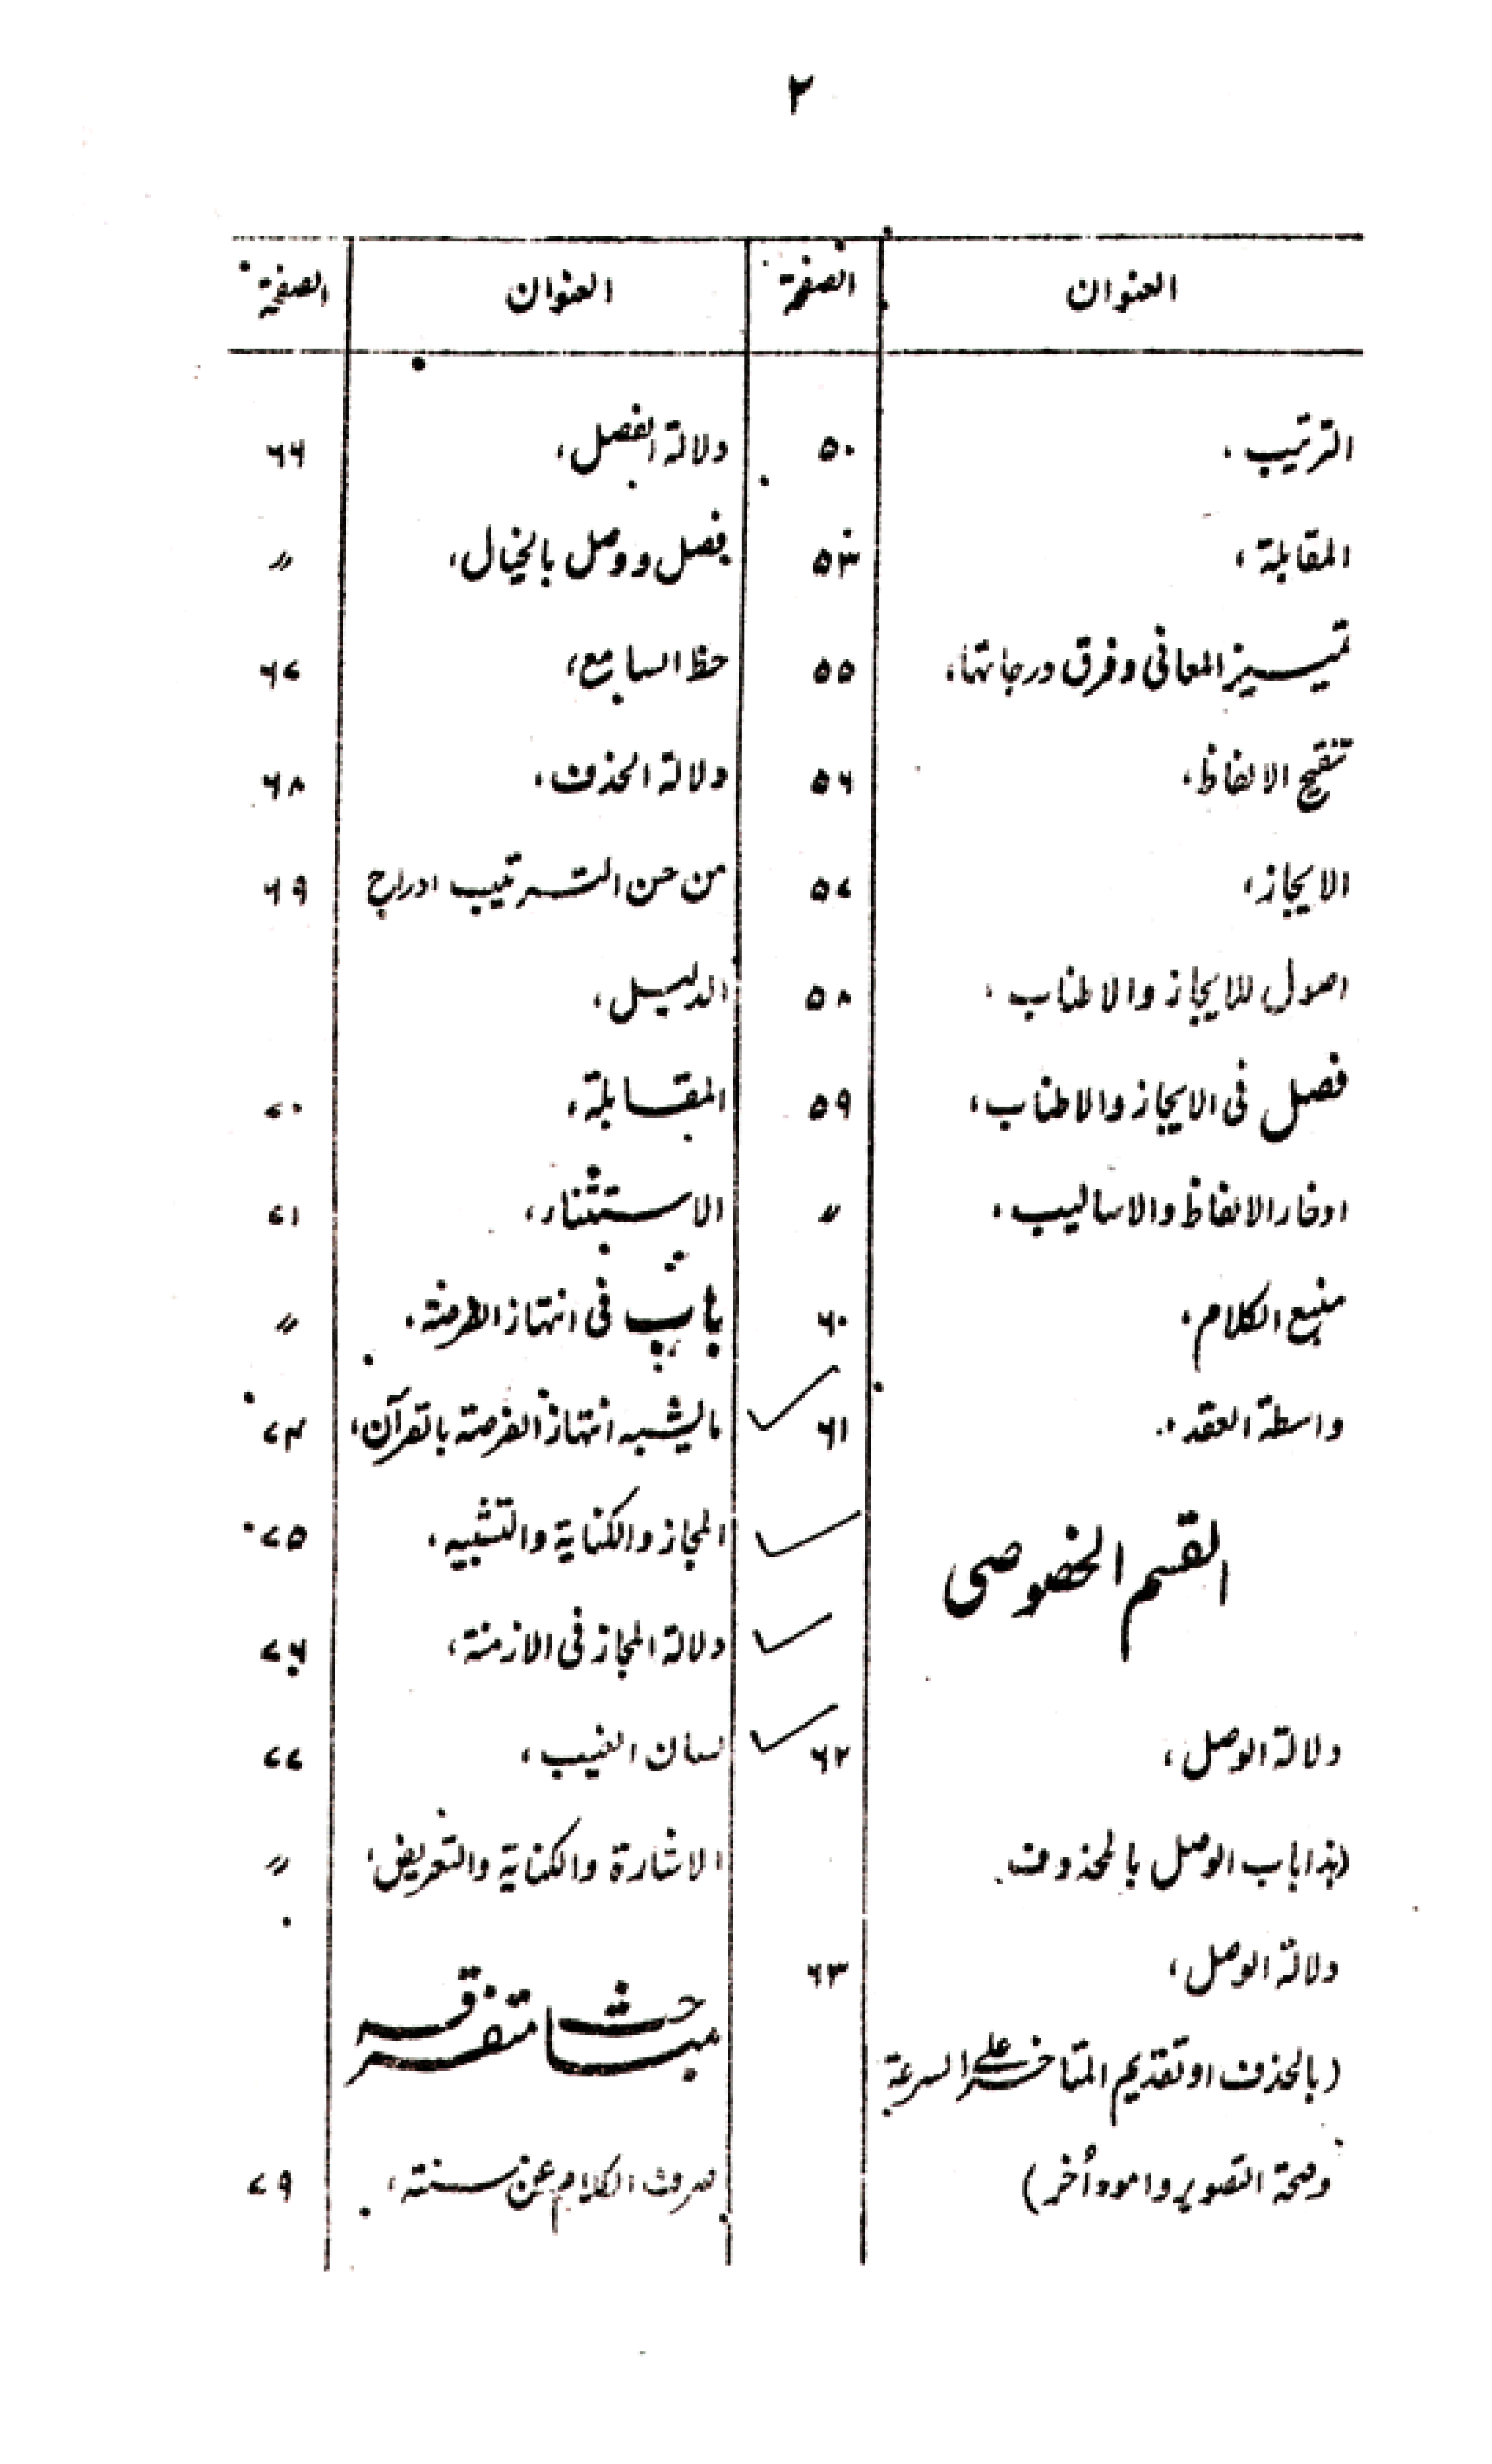 ٢
العنوان الصفحة
الترتيب، ٥٠
المقابلة، ٥٣
تمييز المعانى وفرق درجاتها، ٥٥
تنقيح الالفاظ، ٥٦
الايجاز، ٥٧
اصول للايجاز والاطناب، ٥٨
فصل فى الايجاز والاطناب، ٥٩
ادخار الالفاظ والاساليب، 〃
منبع الكلام، ٦٠
واسطة العقد، ٦١
القسم الخصوصى
دلالة الوصل، ٦٢
(هذا باب الوصل بالمحذوف
دلالة الوصل، ٦٣
(بالحذف او تقديم المتاخر على السرعة
وصحة التصوير وامور أخر)
العنوان الصفحة
دلالة الفصل، ٦٦
فصل ووصل بالخيال، 〃
حظ السامع، ٦٧
دلالة الحذف، ٦٨
من حسن الترتيب ادراج ٦٩
الدليل،
المقابلة، ٧٠
الاستثناء، ٧١
باب فى انتهاز الفرصة، 〃
ما يشبه انتهاز الفرصة بالقرآن، ٧٣
المجاز والكناية والتشبيه، ٧٥
دلالة المجاز فى الازمنة، ٧٦
لسان الغيب، ٧٧
الاشارة والكناية والتعريض، 〃
مباحث متفرقه
صرف الكلام عن سننه، ٧٩